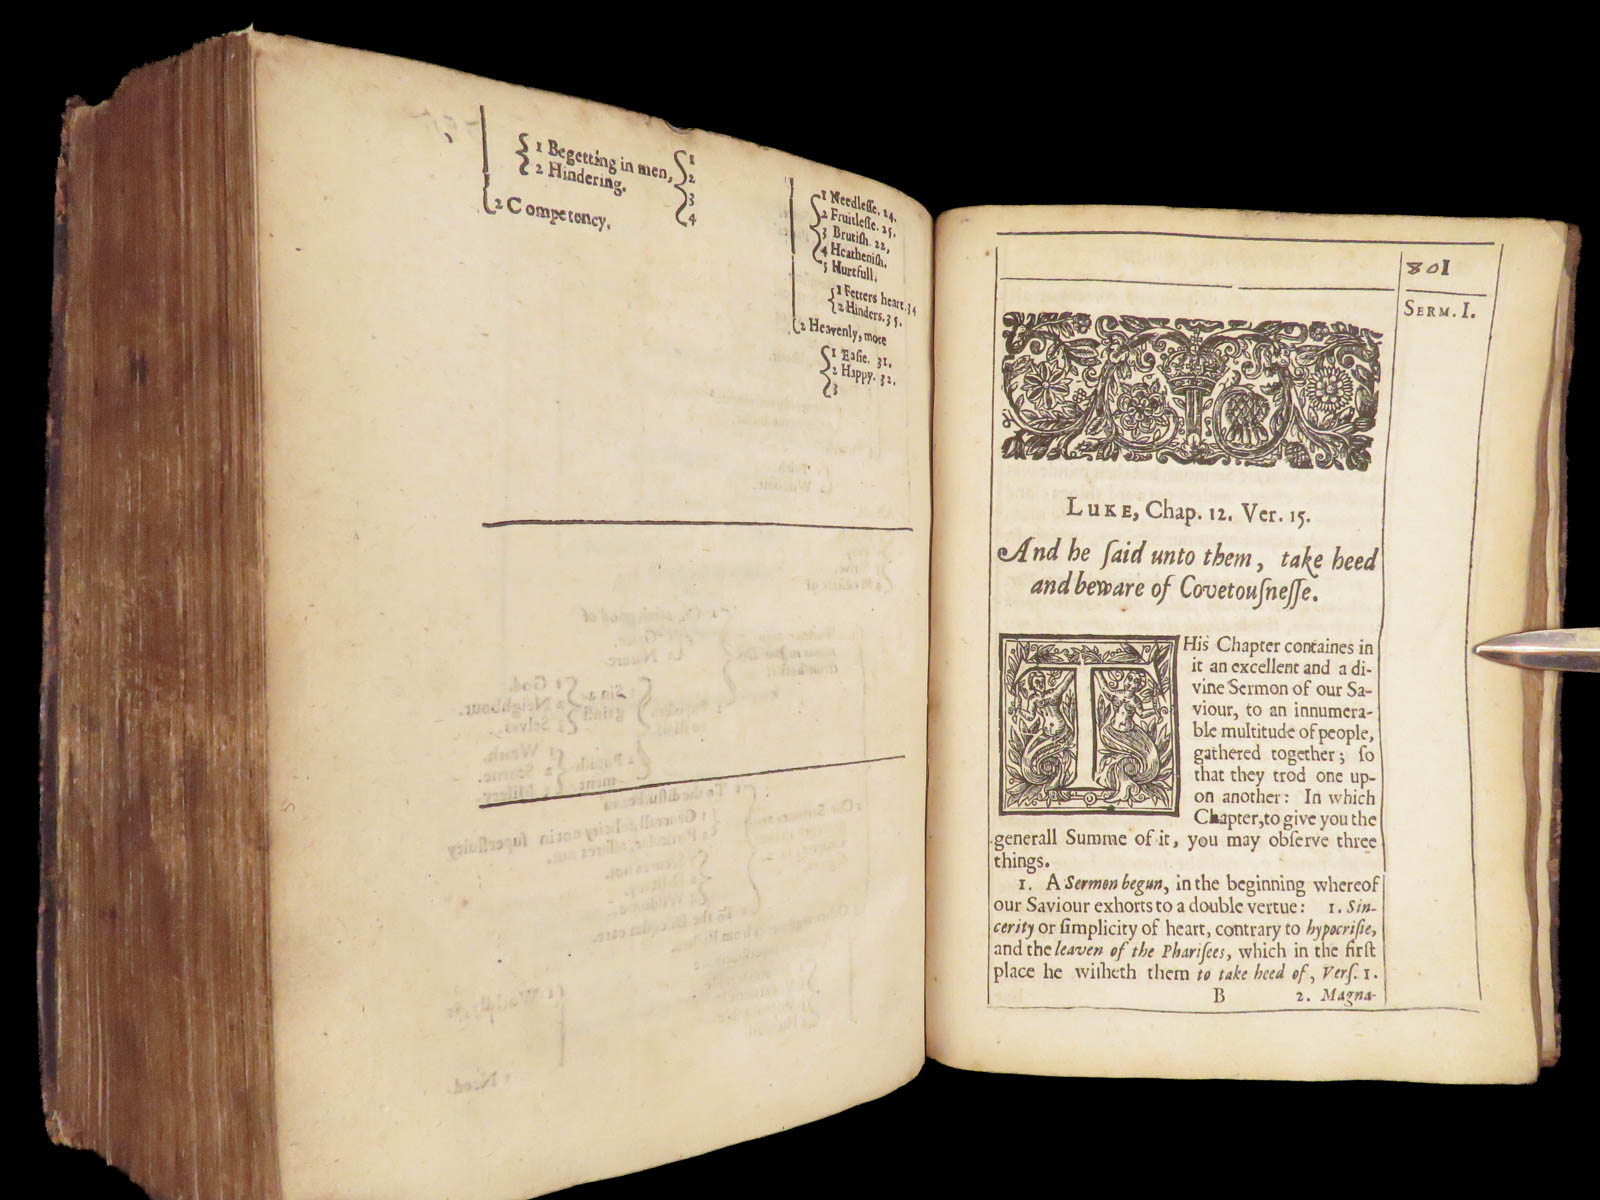 1 Begetting in men,
2 Hindering.
1
2
3
4
2 Competency.
1 Needleſſe. 24.
2 Fruitleſſe. 25.
3 Brutiſh. 22,
4 Heatheniſh.
5 Hurtfull.
1 Fetters heart. 34
2 Hinders. 35.
2 Heavenly, more
1 Eaſie. 31.
2 Happy. 32.
3
801
SERM. I.
LUKE, Chap. 12. Ver. 15.
And he ſaid unto them, take heed
and beware of Covetouſneſſe.
THis Chapter containes in
it an excellent and a di-
vine Sermon of our Sa-
viour, to an innumera-
ble multitude of people,
gathered together; ſo
that they trod one up-
on another: In which
Chapter, to give you the
generall Summe of it, you may obſerve three
things.
1. A Sermon begun, in the beginning whereof
our Saviour exhorts to a double vertue: 1. Sin-
cerity or ſimplicity of heart, contrary to hypocriſie,
and the leaven of the Phariſees, which in the firſt
place he wiſheth them to take heed of, Verſ. 1.
B 2. Magna-